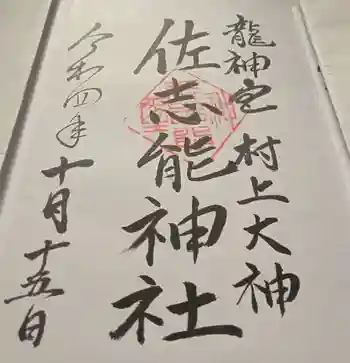 龍神宮 村上大神
佐志能神社
令和四年 十月十五日